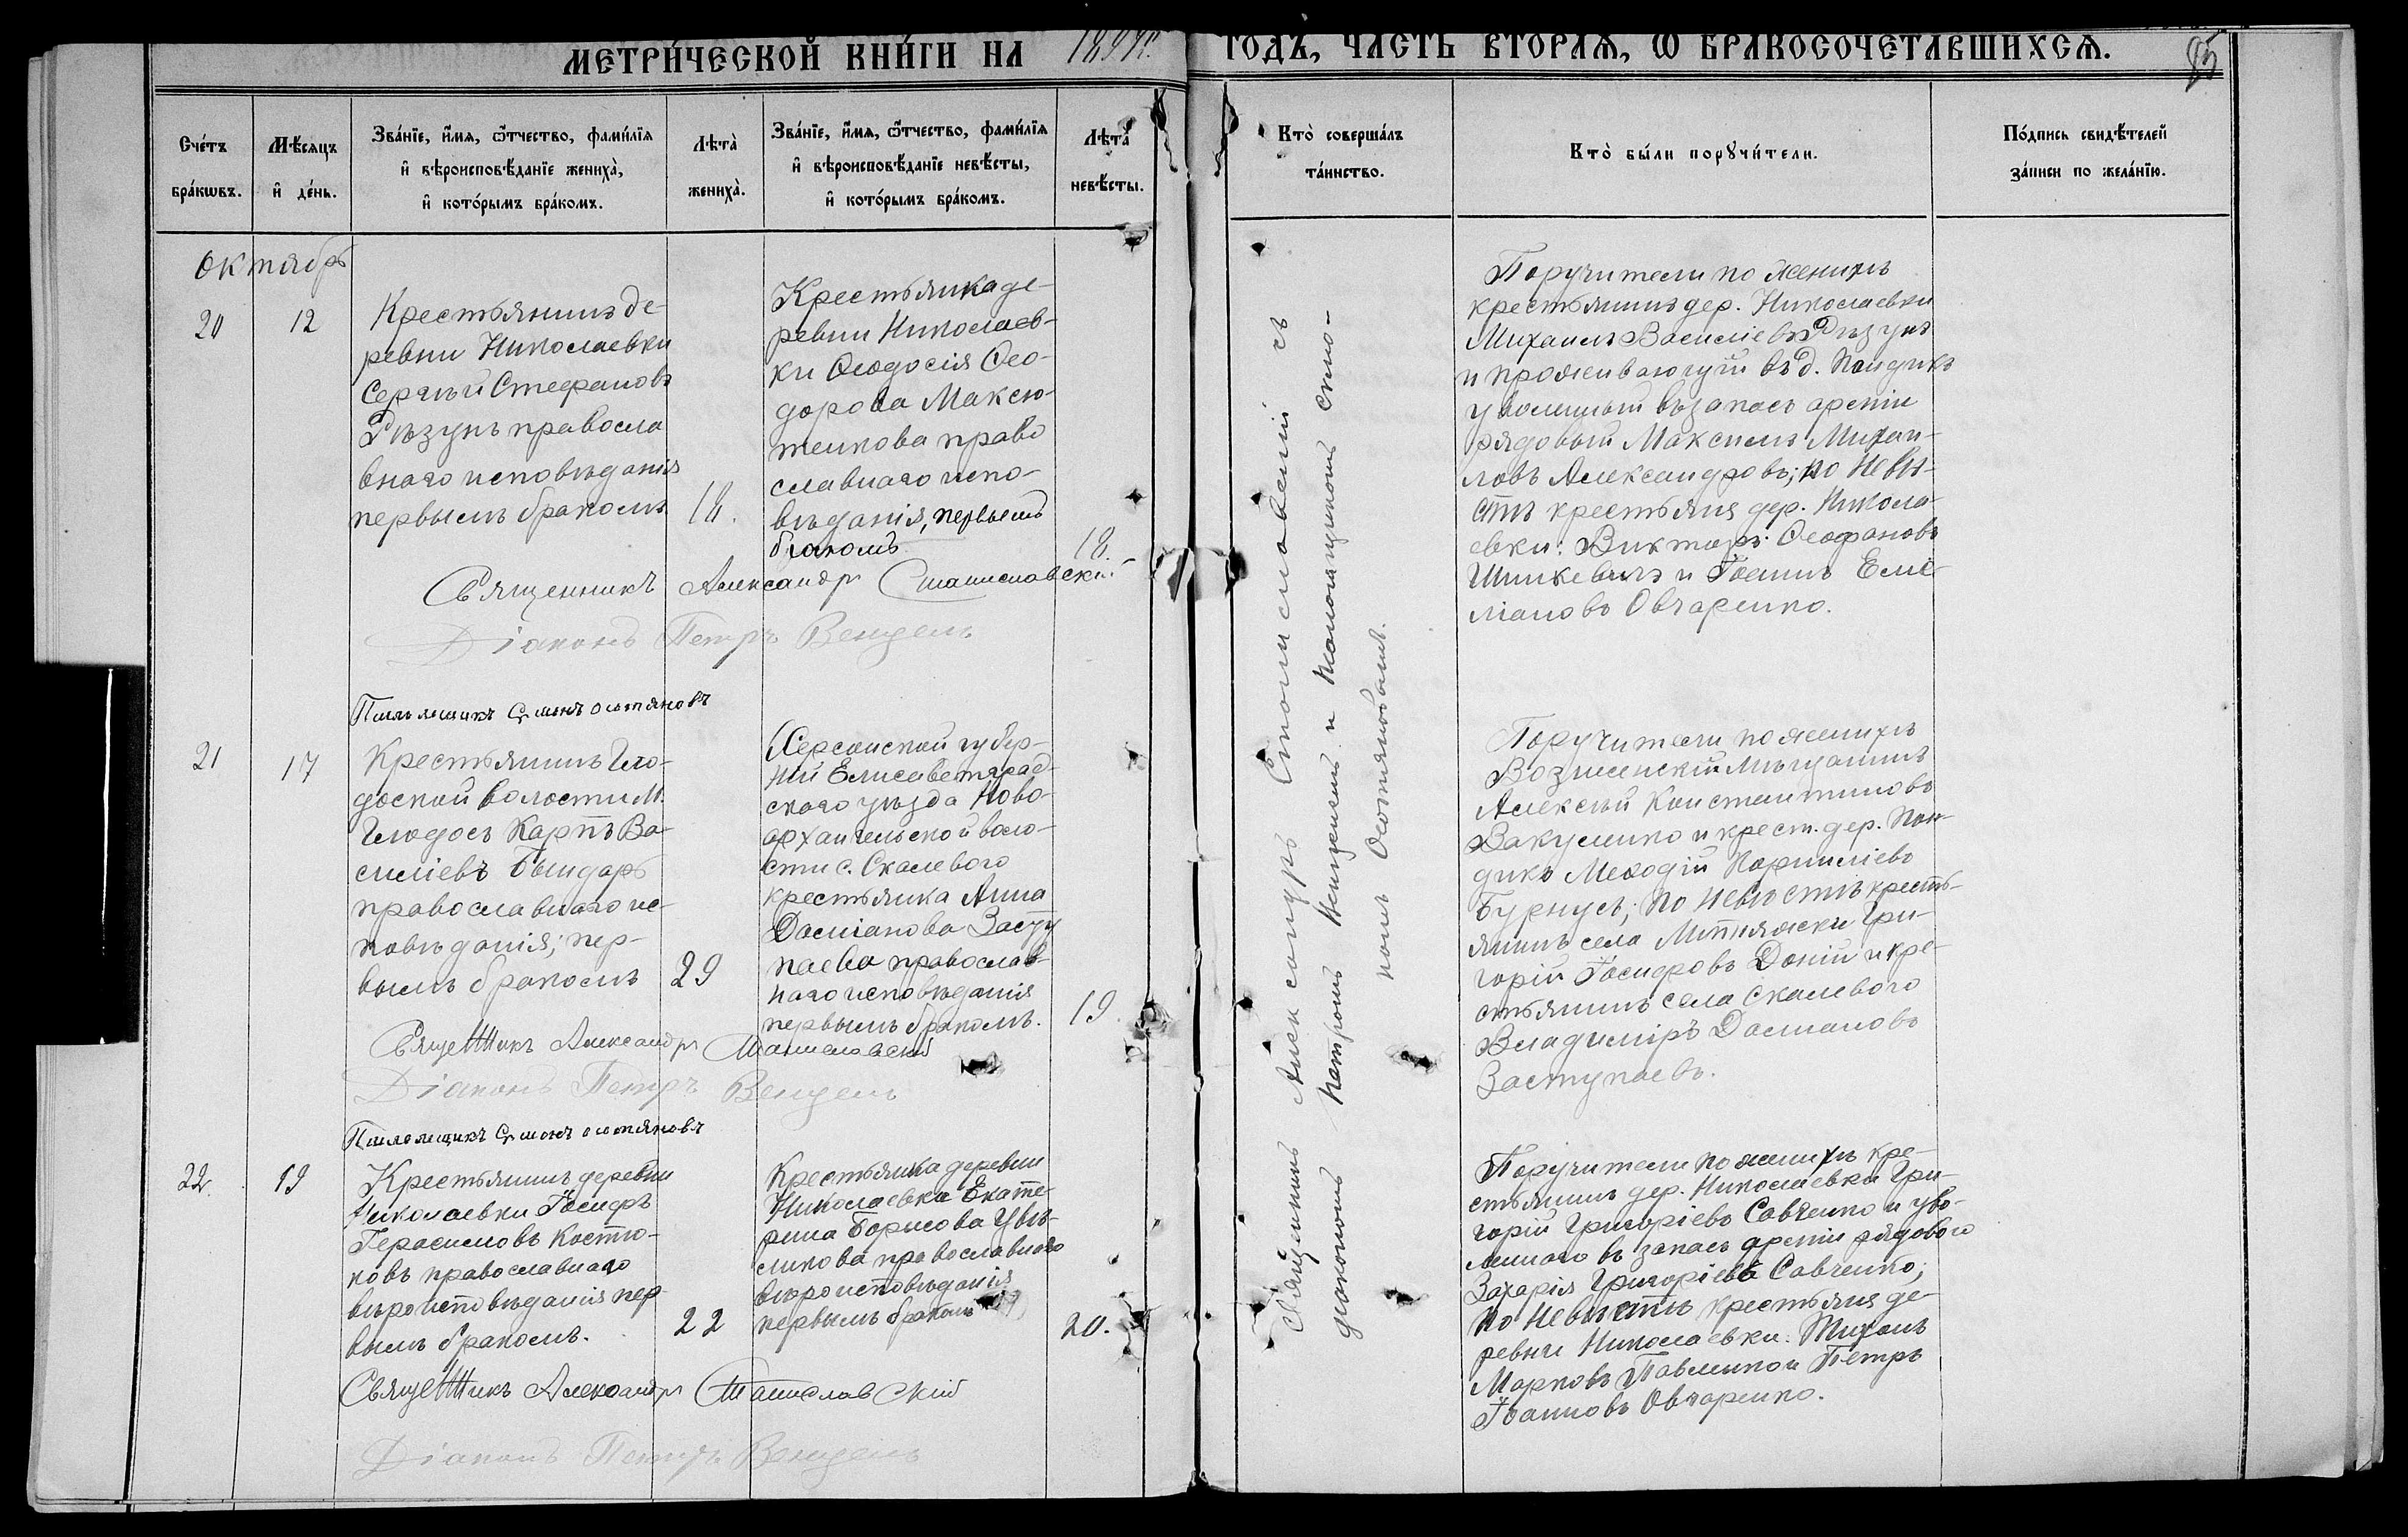 МЕТРИ́ЧЕСКОЙ КНИ́ГИ НА 1899 г.
ГОДЪ, ЧАСТЬ ВТОРАѦ, Ѡ БРАКОСОЧЕТАВШИХСѦ.
85
Сче́тъ бра́кѡвъ.
Мѣ́сяцъ и҆ де́нь.
Зва́нїе, и҆́мѧ, ѻ҆́тчество, фами́лїѧ
и҆ вѣроисповѣ́данїе жениха̀,
и҆ кото́рымъ бра́комъ.
Лѣта̀ жениха̀.
Зва́нїе, и҆́мѧ, ѻ҆́тчество, фами́лїѧ
и҆ вѣроисповѣ́данїе невѣ́сты,
и҆ кото́рымъ бра́комъ.
Лѣта̀ невѣ́сты.
Кто̀ соверша́лъ
та́инство.
Кто̀ бы́ли порꙋчи́тели.
По́дпись свидѣ́телей
за́писи по жела́нїю.
Октябрь
20
12
Крестьянинъ де-
ревни Николаевки
Сергѣй Стефановъ
Рѣзунъ правосла
внаго исповѣданія
первымъ бракомъ
18.
Крестьянка де-
ревни Николаев-
ки Ѳеодосія Ѳео-
дорова Максю-
тенкова право
славнаго испо-
вѣданія, первымъ
бракомъ
18.
Поручители по женихѣ
крестьянинъ дер. Николаевки
Михаилъ Василіевъ Рѣзунъ
и проживающій въ д. Пондикъ
уволенный въ запасъ арміи
рядовый Максимъ Михаи-
ловъ Александровъ; по невѣ-
стѣ крестьяне дер. Никола
евки: Викторъ Ѳеофановъ
Шинкевичъ и Іоаннъ Еме-
ліановъ Овчаренко.
Священникъ Александръ Станиславскій
Діаконъ Петръ Венцель
Псаломщикъ Остяновъ
21
17
Крестьянинъ Гло-
доской волости м.
Глодосъ Карпъ Ва-
силіевъ Бындаръ
православнаго ис-
повѣданія; пер-
вымъ бракомъ
29
Херсонской губер-
ніи Елисаветград-
скаго уѣзда Ново-
архангельской воло-
сти с. Скалеваго
крестьянка Анна
Даміанова Засту
паева православ-
наго исповѣданія
первымъ бракомъ.
19
Поручители по женихѣ
Вознесенскій мѣщанинъ
Алексѣй Константиновъ
Вакуленко и крест. дер. Пон-
дикъ Меѳодій Корниліевъ
Бурнусъ; по невѣстѣ кресть-
янинъ села Митняжки Гри-
горій Іосифовъ Доній и кре-
стьянинъ села Скалеваго
Владиміръ Даміановъ
Заступаевъ.
Священникъ Александръ Станиславскій
Діаконъ Петръ Венцель
Псаломщикъ Остяновъ
22.
19
Крестьянинъ деревни
Николаевки Іосифъ
Герасимовъ Костю-
ковъ православнаго
вѣроисповѣданія пер
вымъ бракомъ.
22
Крестьянка деревни
Николаевки Екате-
рина Борисова
православнаго
вѣроисповѣданія
первымъ бракомъ
20.
Поручители по женихѣ кре-
стьянинъ дер. Николаевки Гри-
горій Григоріевъ Савченко и уво-
леннаго въ запасъ арміи рядового
Захарія Григоріева Савченко;
по невѣстѣ крестьяне де-
ревни Николаевки: Тихонъ
Марковъ Павленко и Петръ
Іоанновъ Овчаренко.
Священникъ Александръ Станиславскій
Діаконъ Петръ Венцель
Священникъ Александръ Станиславскій съ
діакономъ Петромъ Венцелемъ и псаломщикомъ
Остяновымъ.